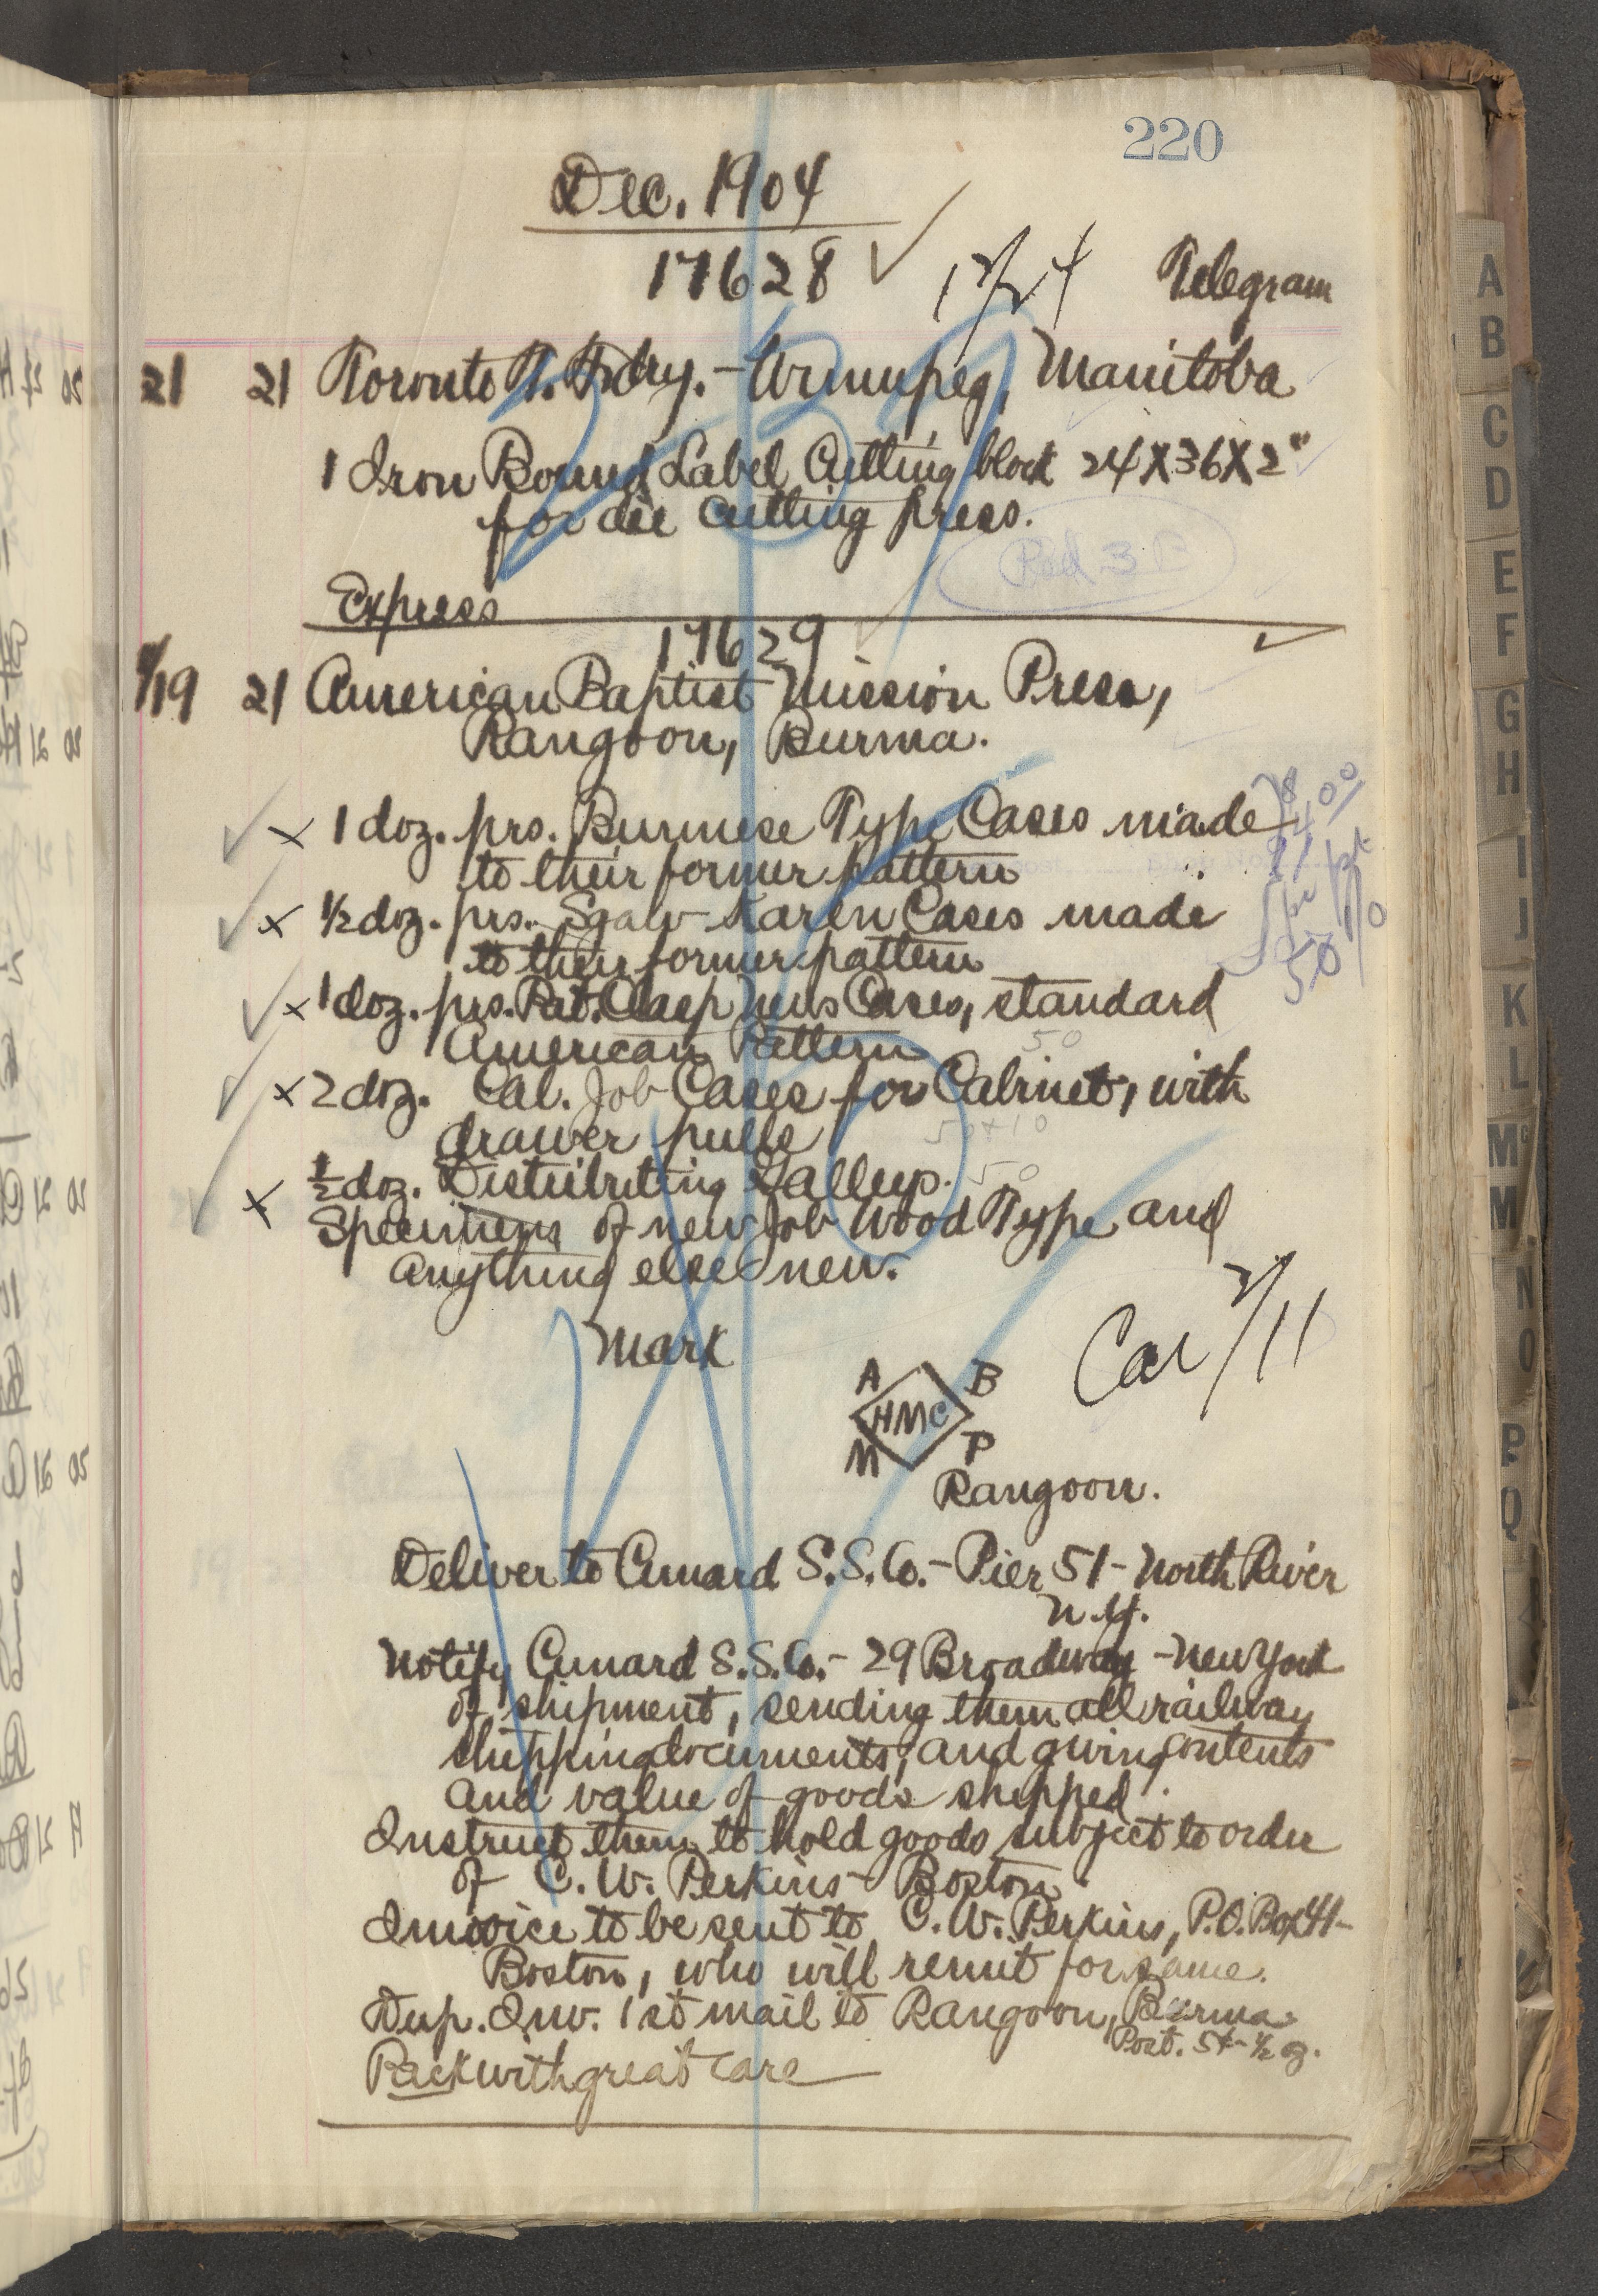 220
Dec. 1904
17628 12/24 Telegram
21 21 Toronto T. Fdry. - Winnipeg, Manitoba
1 Iron Bound Label Cutting block 24X36X2"
for die cutting press.
Rec'd
Express
17629
21 American Baptist Mission Press,
Rangoon, Burma.
x 1 doz. prs. Burmese Type Cases made
to their former pattern
x ½ doz. prs. Sgaw-Karen Cases made
to their former pattern
x 1 doz. prs. Pat. Clasp News Cases, standard
American Pattern
50
x 2 doz. Cal. Job Cases for Cabinet, with
drawer pulls
50+10
x ½ doz. Distributing Galleys. 50
Specimens of new Job Wood Type and
anything else new.
Car 2/11
Mark
A B
HMC
M P
Rangoon.
Deliver to Cunard S.S. Co. - Pier 51 - North River
N.Y.
Notify Cunard S.S. Co. - 29 Broadway - New York
of shipment, sending them all railway
shipping documents, and giving contents
and value of goods shipped.
Instruct them to hold goods subject to order
of C. W. Perkins - Boston
Invoice to be sent to C. W. Perkins, P.O. Box 41 -
Boston, who will remit for same.
Dup. Inv. 1st mail to Rangoon, Burma
Post. 5¢ - ½ oz.
Pack with great care
A
B
C
D
E
F
G
H
I
J
K
L
Mc
M
N
O
P
Q